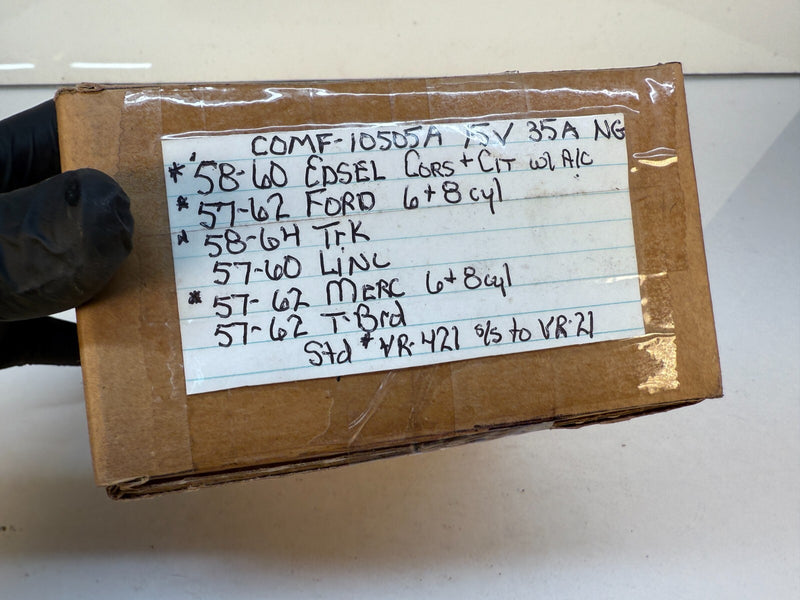 COMF-10505A 15V 35A NG
* '58-60 EDSEL CORS + CIT w/ A/C
* 57-62 FORD 6+8 cyl
* 58-64 TrK
57-60 LINC
* 57-62 MERC 6+8 cyl
57-62 T-Brd
Std * VR-421 s/s to VR-21